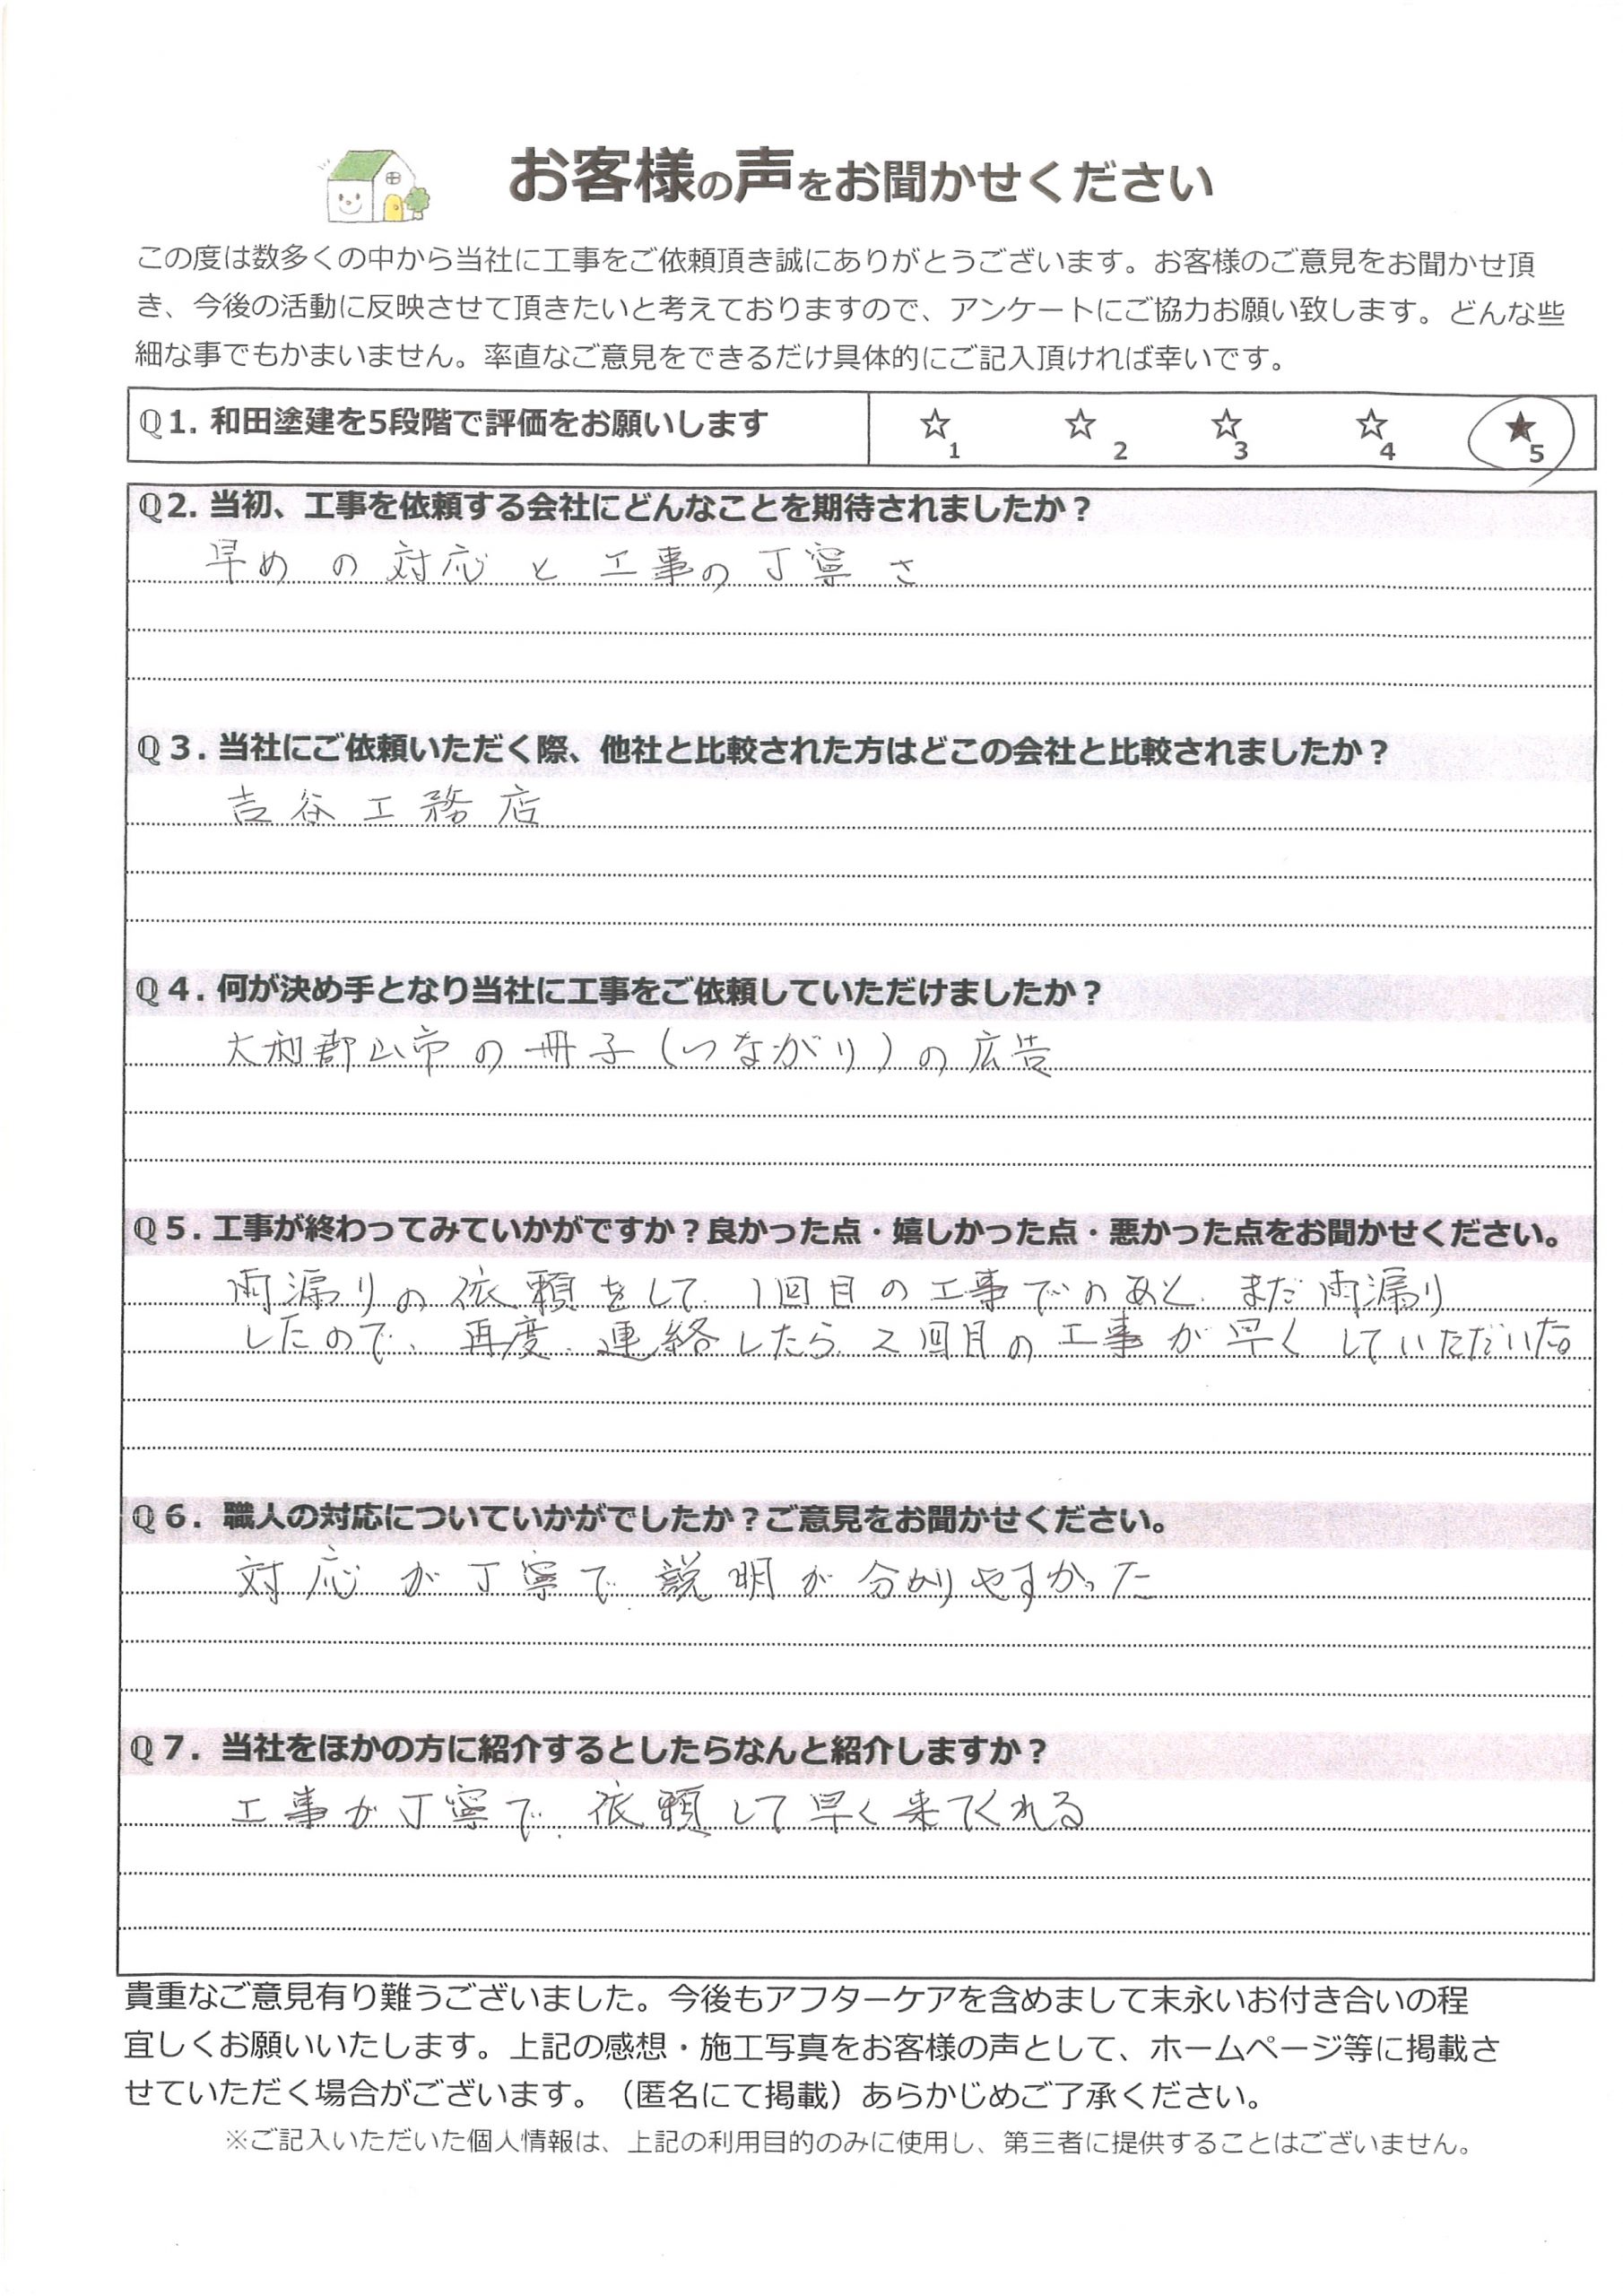 お客様の声をお聞かせください
この度は数多くの中から当社に工事をご依頼頂き誠にありがとうございます。お客様のご意見をお聞かせ頂
き、今後の活動に反映させて頂きたいと考えておりますので、アンケートにご協力お願い致します。どんな些
細な事でもかまいません。率直なご意見をできるだけ具体的にご記入頂ければ幸いです。
Q1. 和田塗建を5段階で評価をお願いします ☆1 ☆2 ☆3 ☆4 ★5
Q2. 当初、工事を依頼する会社にどんなことを期待されましたか？
早めの対応と工事の丁寧さ
Q3. 当社にご依頼いただく際、他社と比較された方はどこの会社と比較されましたか？
吉谷工務店
Q4. 何が決め手となり当社に工事をご依頼していただけましたか？
大和郡山市の冊子(つながり)の広告
Q5. 工事が終わってみていかがですか？良かった点・嬉しかった点・悪かった点をお聞かせください。
雨漏りの依頼をして、1回目の工事でのあと、まだ雨漏り
したので、再度、連絡したら、2回目の工事が早くしていただいた。
Q6. 職人の対応についていかがでしたか？ご意見をお聞かせください。
対応が丁寧で、説明が分かりやすかった
Q7. 当社をほかの方に紹介するとしたらなんと紹介しますか？
工事が丁寧で、依頼して早く来てくれる
貴重なご意見有り難うございました。今後もアフターケアを含めまして末永いお付き合いの程
宜しくお願いいたします。上記の感想・施工写真をお客様の声として、ホームページ等に掲載さ
せていただく場合がございます。（匿名にて掲載）あらかじめご了承ください。
※ご記入いただいた個人情報は、上記の利用目的のみに使用し、第三者に提供することはございません。